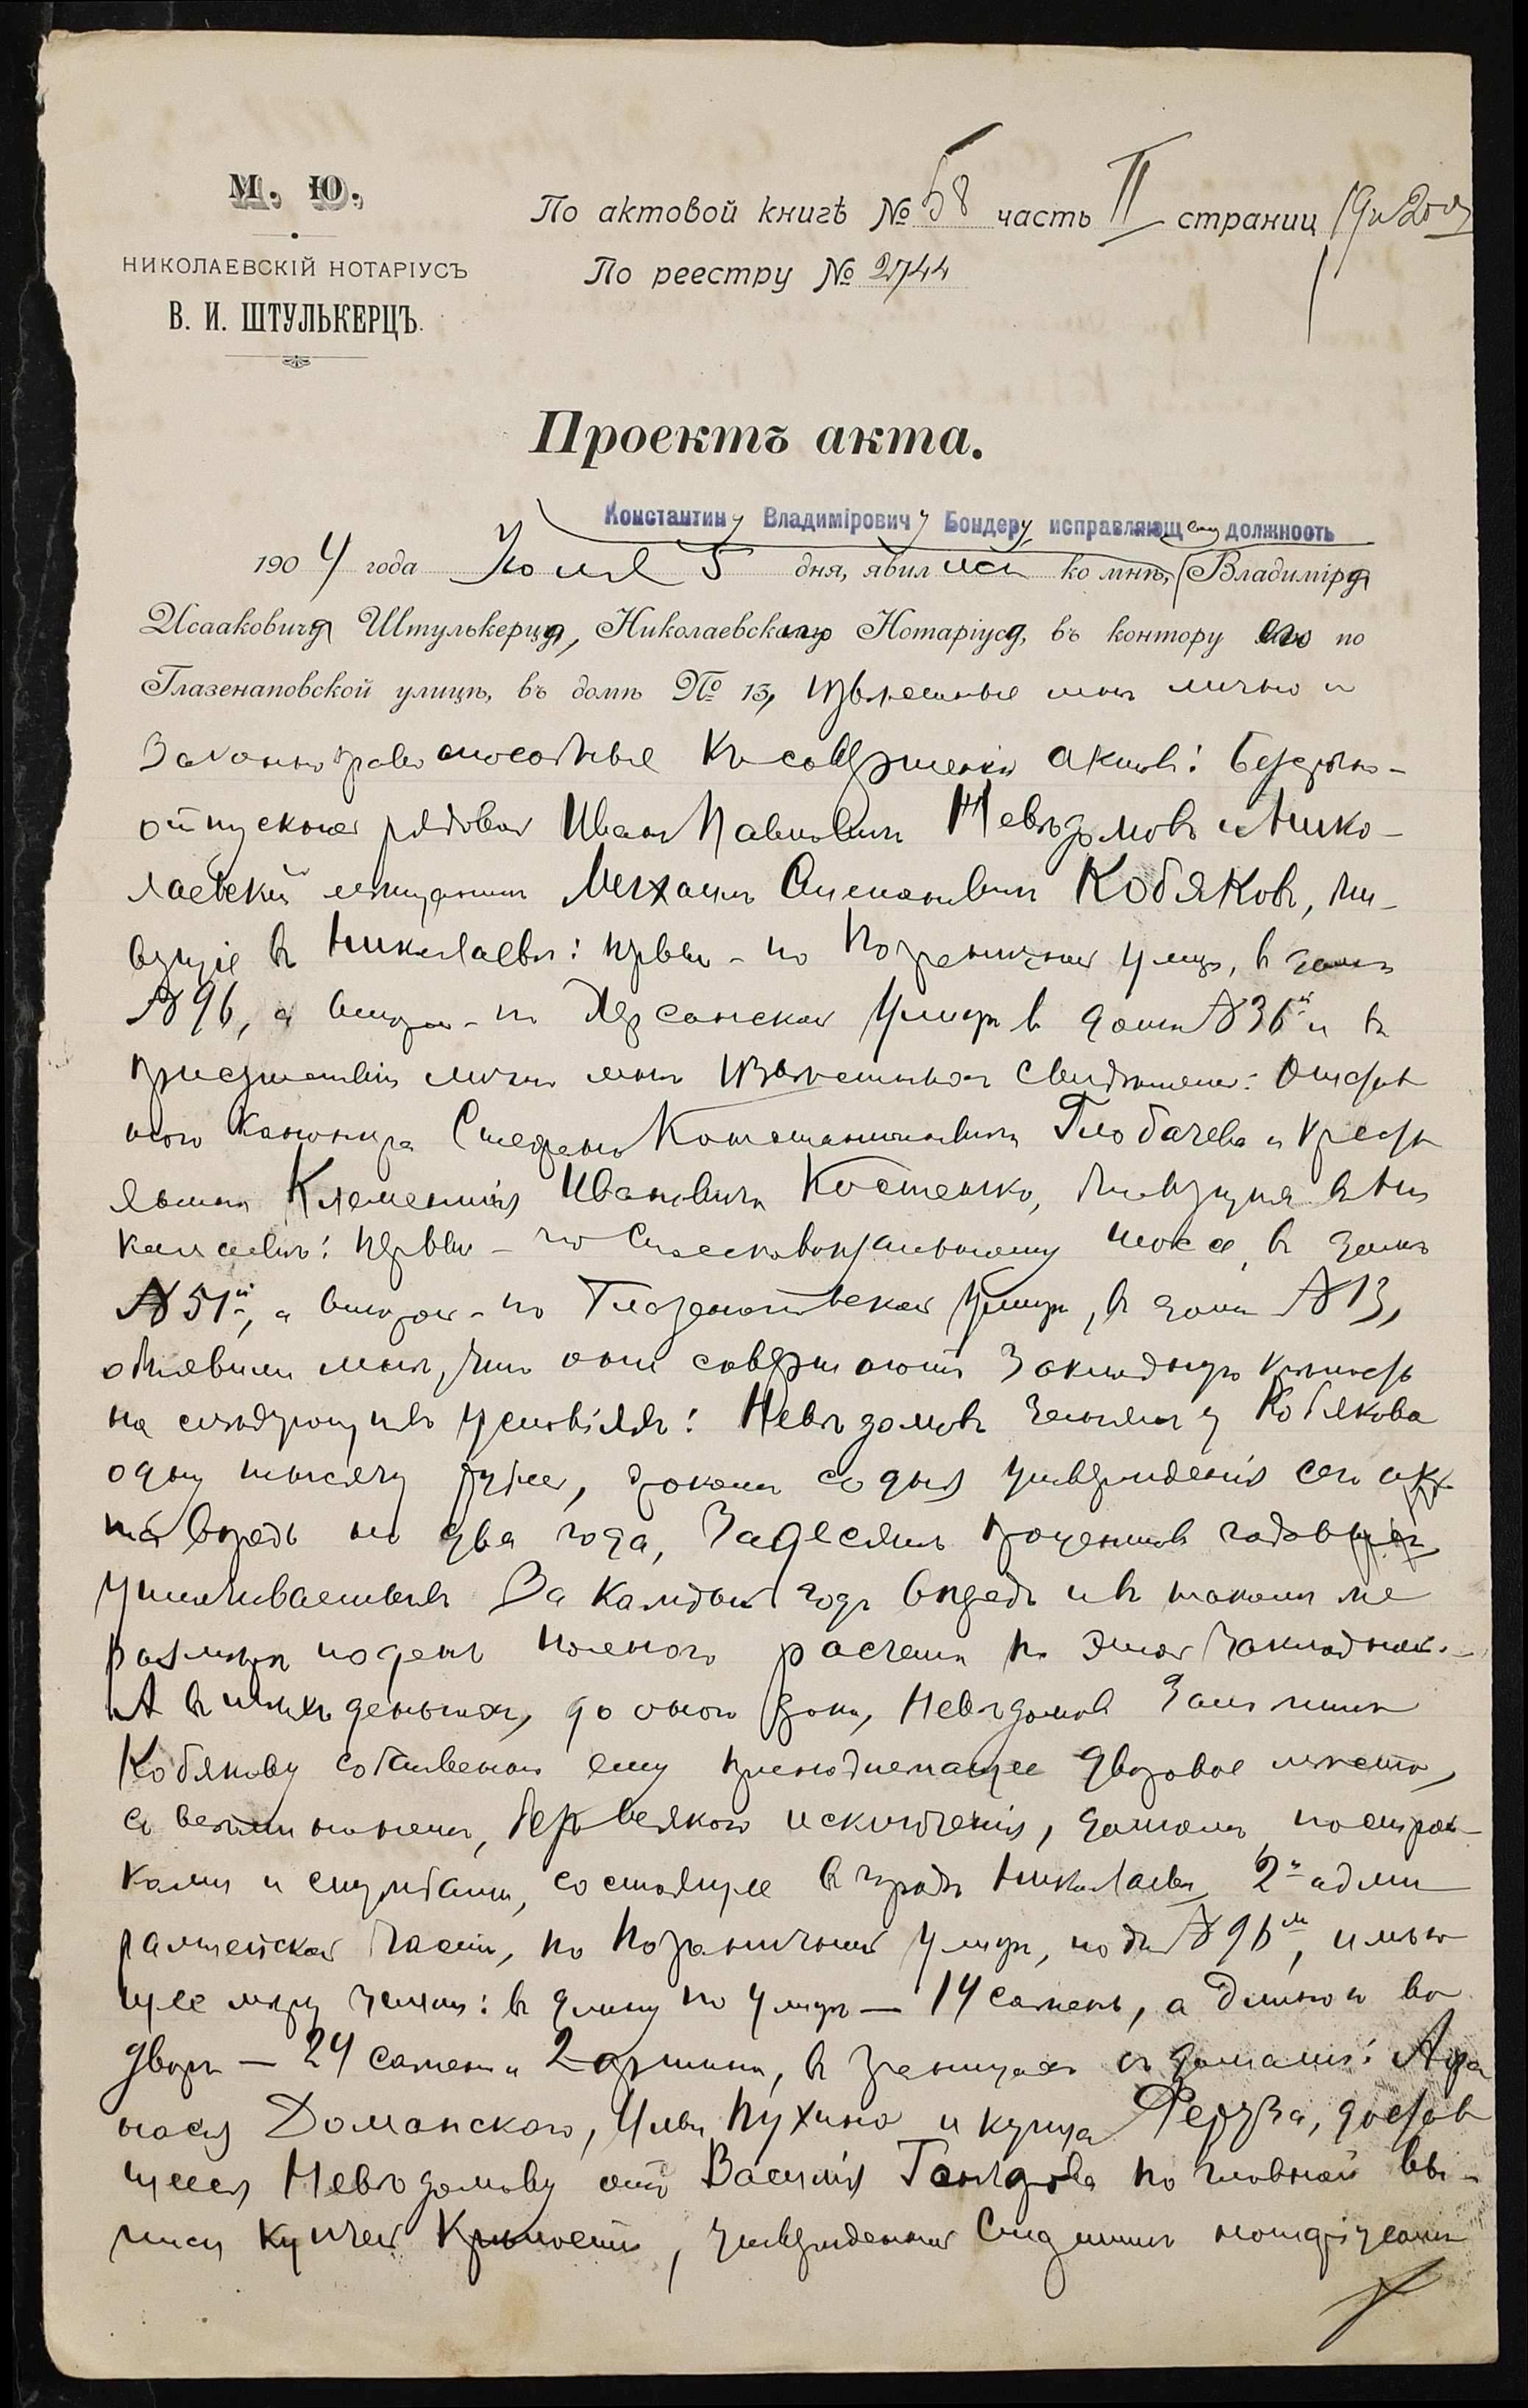 М. Ю.
НИКОЛАЕВСКІЙ НОТАРІУСЪ
В. И. ШТУЛЬКЕРЦЪ.
По актовой книгѣ № 58 часть II страниц 19 и 20
По реестру № 2744
Проектъ акта.
Константину Владиміровичу Бондеру, исправляющему должность
1904 года Іюля 5 дня, явились ко мнѣ, Владиміра
Исааковича Штулькерца, Николаевскаго Нотаріуса, въ контору его по
Глазенаповской улицѣ, въ домѣ № 13, извѣстные мнѣ лично и
законно правоспособные къ совершенію актовъ: безсрочно-
отпускной рядовой Иванъ Павловичъ Невѣдомовъ и Нико-
лаевскій мѣщанинъ Михаилъ Степановичъ Кобяковъ, жи-
вущіе въ Николаевѣ: первый - по Пограничной улицѣ, въ домѣ
№ 96, а второй - по Херсонской улицѣ въ домѣ № 36й и въ
присутствіи лично мнѣ извѣстныхъ свидѣтелей: отстав
ного канонира Стефана Константиновича Глобачева и кресть
янина Клементія Ивановича Костенко, живущихъ въ Ни
колаевѣ: первый - по шоссе, въ домѣ
№ 51й, а второй - по Глазенаповской улицѣ, въ домѣ № 13,
объявили мнѣ, что они совершаютъ закладную крѣпость
на слѣдующихъ условіяхъ: Невѣдомовъ занялъ у Кобякова
одну тысячу рублей, срокомъ со дня утвержденія сего ак
та впредь на два года, за десять процентовъ годовыхъ
уплачиваемыхъ за каждый годъ впредь и въ такомъ же
размѣрѣ по день полнаго расчета по этой закладной.-
А въ тѣхъ деньгахъ, до оного срока, Невѣдомовъ заложилъ
Кобякову собственно ему принадлежащее дворовое мѣсто,
со всѣми на немъ, безъ всякаго исключенія, домомъ, построй-
ками и службами, состоящее въ городѣ Николаевѣ, 2й адми
ралтейской части, по Пограничной улицѣ, подъ № 96м, имѣю
щее мѣру земли: въ длину по улицѣ — 14 сажень, а длиною во
дворъ — 24 сажени 2 аршина, въ границахъ съ домами: Афа
насія Доманскаго, Ильи Пухина и купца Федза, достав
шееся Невѣдомову отъ Василія по главной вы-
писи купчей крѣпости, утвержденной Старшимъ нотаріусомъ